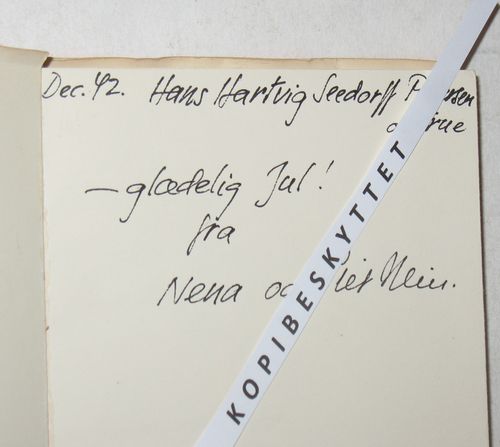 Dec. 42. Hans Hartvig Seedorff
– glædelig Jul!
fra
Nena Hein.
KOPIBESKYTTET